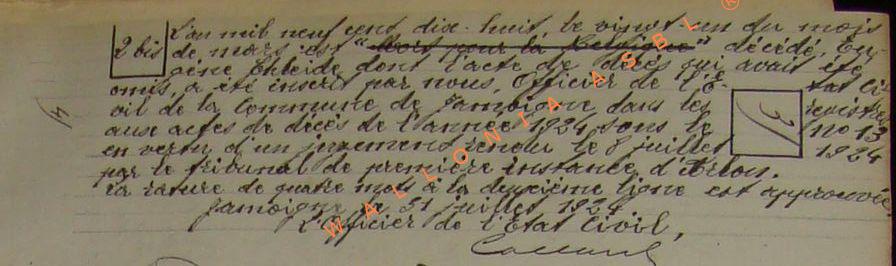 L'an mil neuf cent dix-huit, le vingt-un du mois
2 bis de mars est "Mort pour la Belgique" décédé, Eu-
gène dont l'acte de décès qui avait été
omis, a été inscrit par nous, Officier de l'E- tat Ci-
vil de la Commune de Jamoigne dans les registres
aux actes de décès de l'année 1924 sous le no 13
en vertu d'un jugement rendu le 8 juillet 1924
par le tribunal de première instance d'Arlon.
La rature de quatre mots à la deuxième ligne est approuvée.
Jamoigne le 31 juillet 1924
L'Officier de l'Etat Civil,
WALLONIA ASBL ®